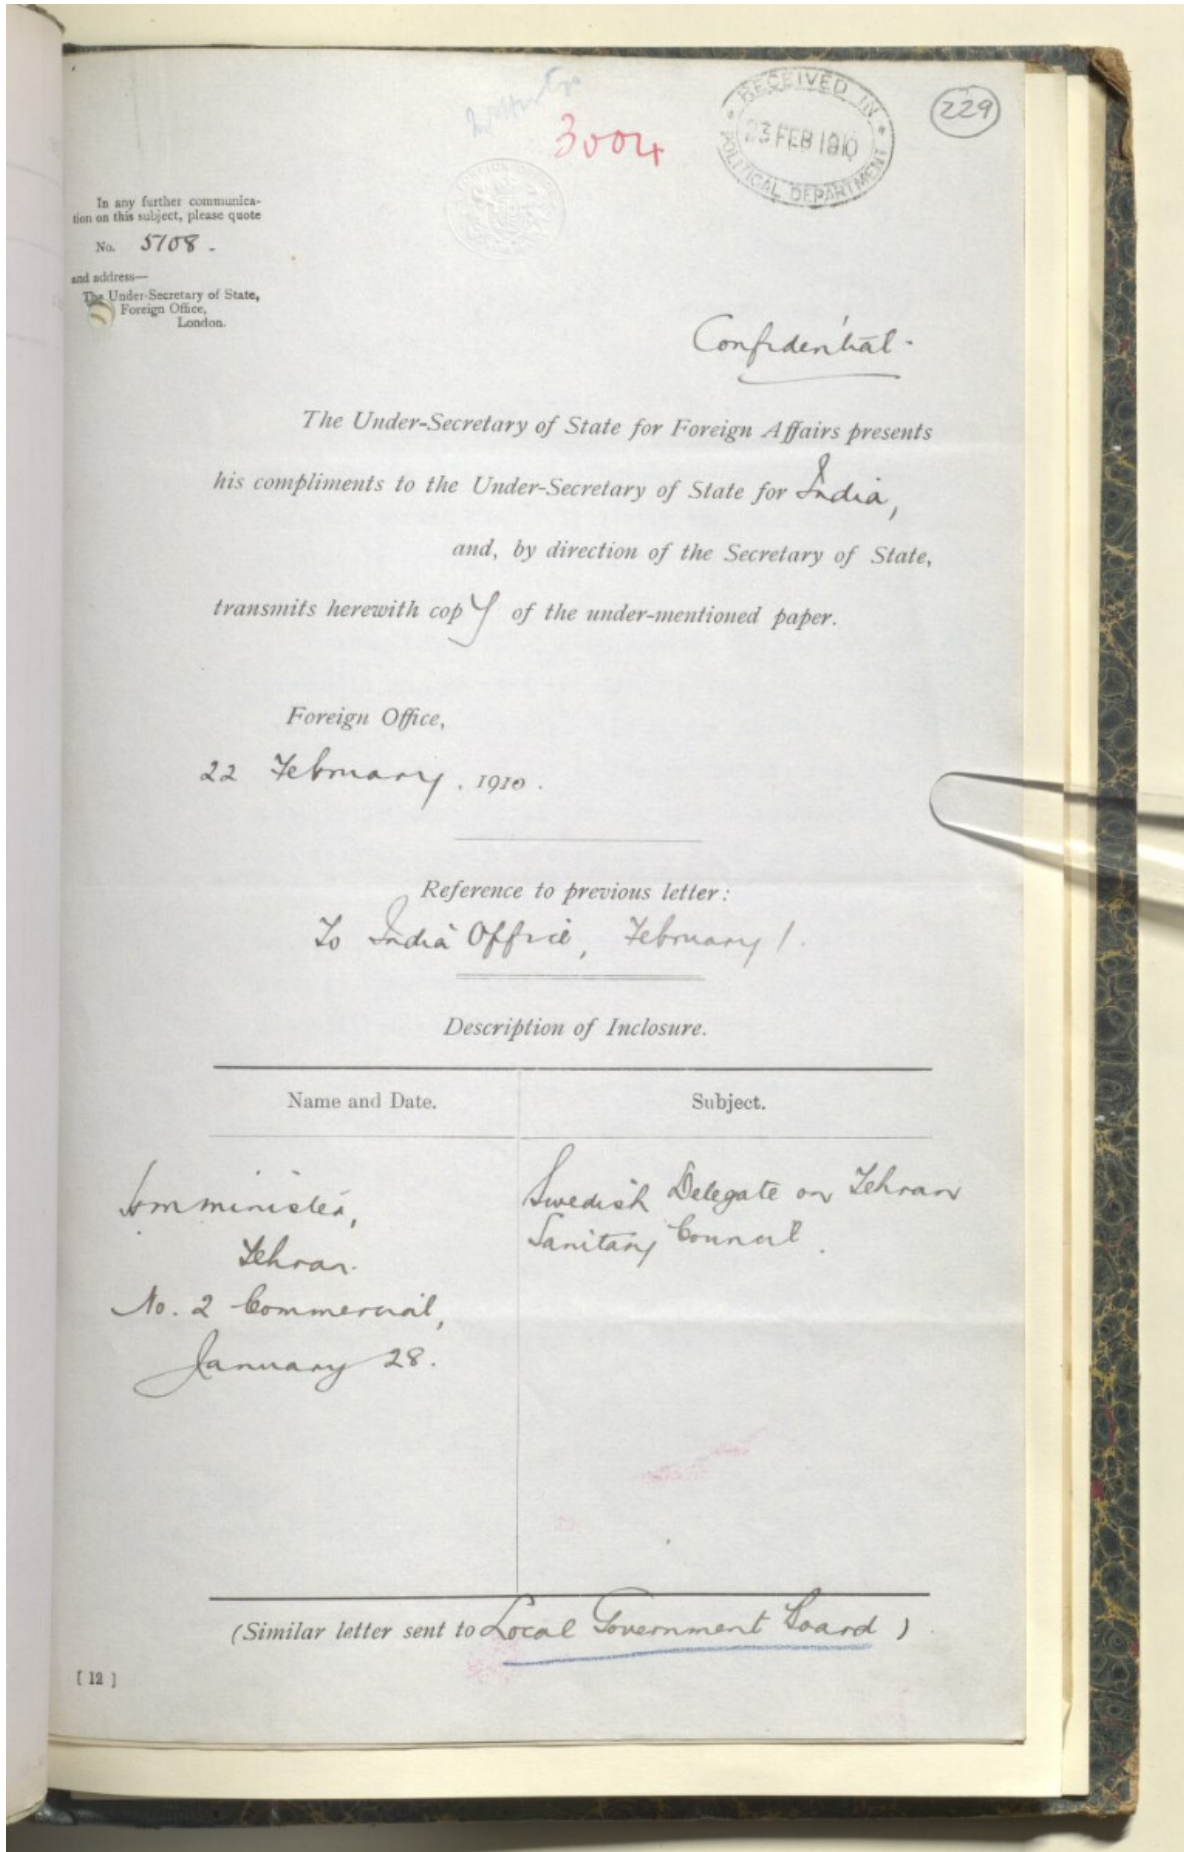 3004
RECEIVED IN
23 FEB 1910
POLITICAL DEPARTMENT
229
In any further communica-
tion on this subject, please quote
No. 5108.
and address—
The Under-Secretary of State,
Foreign Office,
London.
Confidential.
The Under-Secretary of State for Foreign Affairs presents
his compliments to the Under-Secretary of State for India,
and, by direction of the Secretary of State,
transmits herewith copy of the under-mentioned paper.
Foreign Office,
22 February, 1910.
Reference to previous letter:
To India Office, February 1.
Description of Inclosure.
Name and Date. Subject.
Swedish Delegate on Tehran
Sanitary Council.
Tehran.
No. 2 Commercial,
January 28.
(Similar letter sent to Local Government Board)
[12]